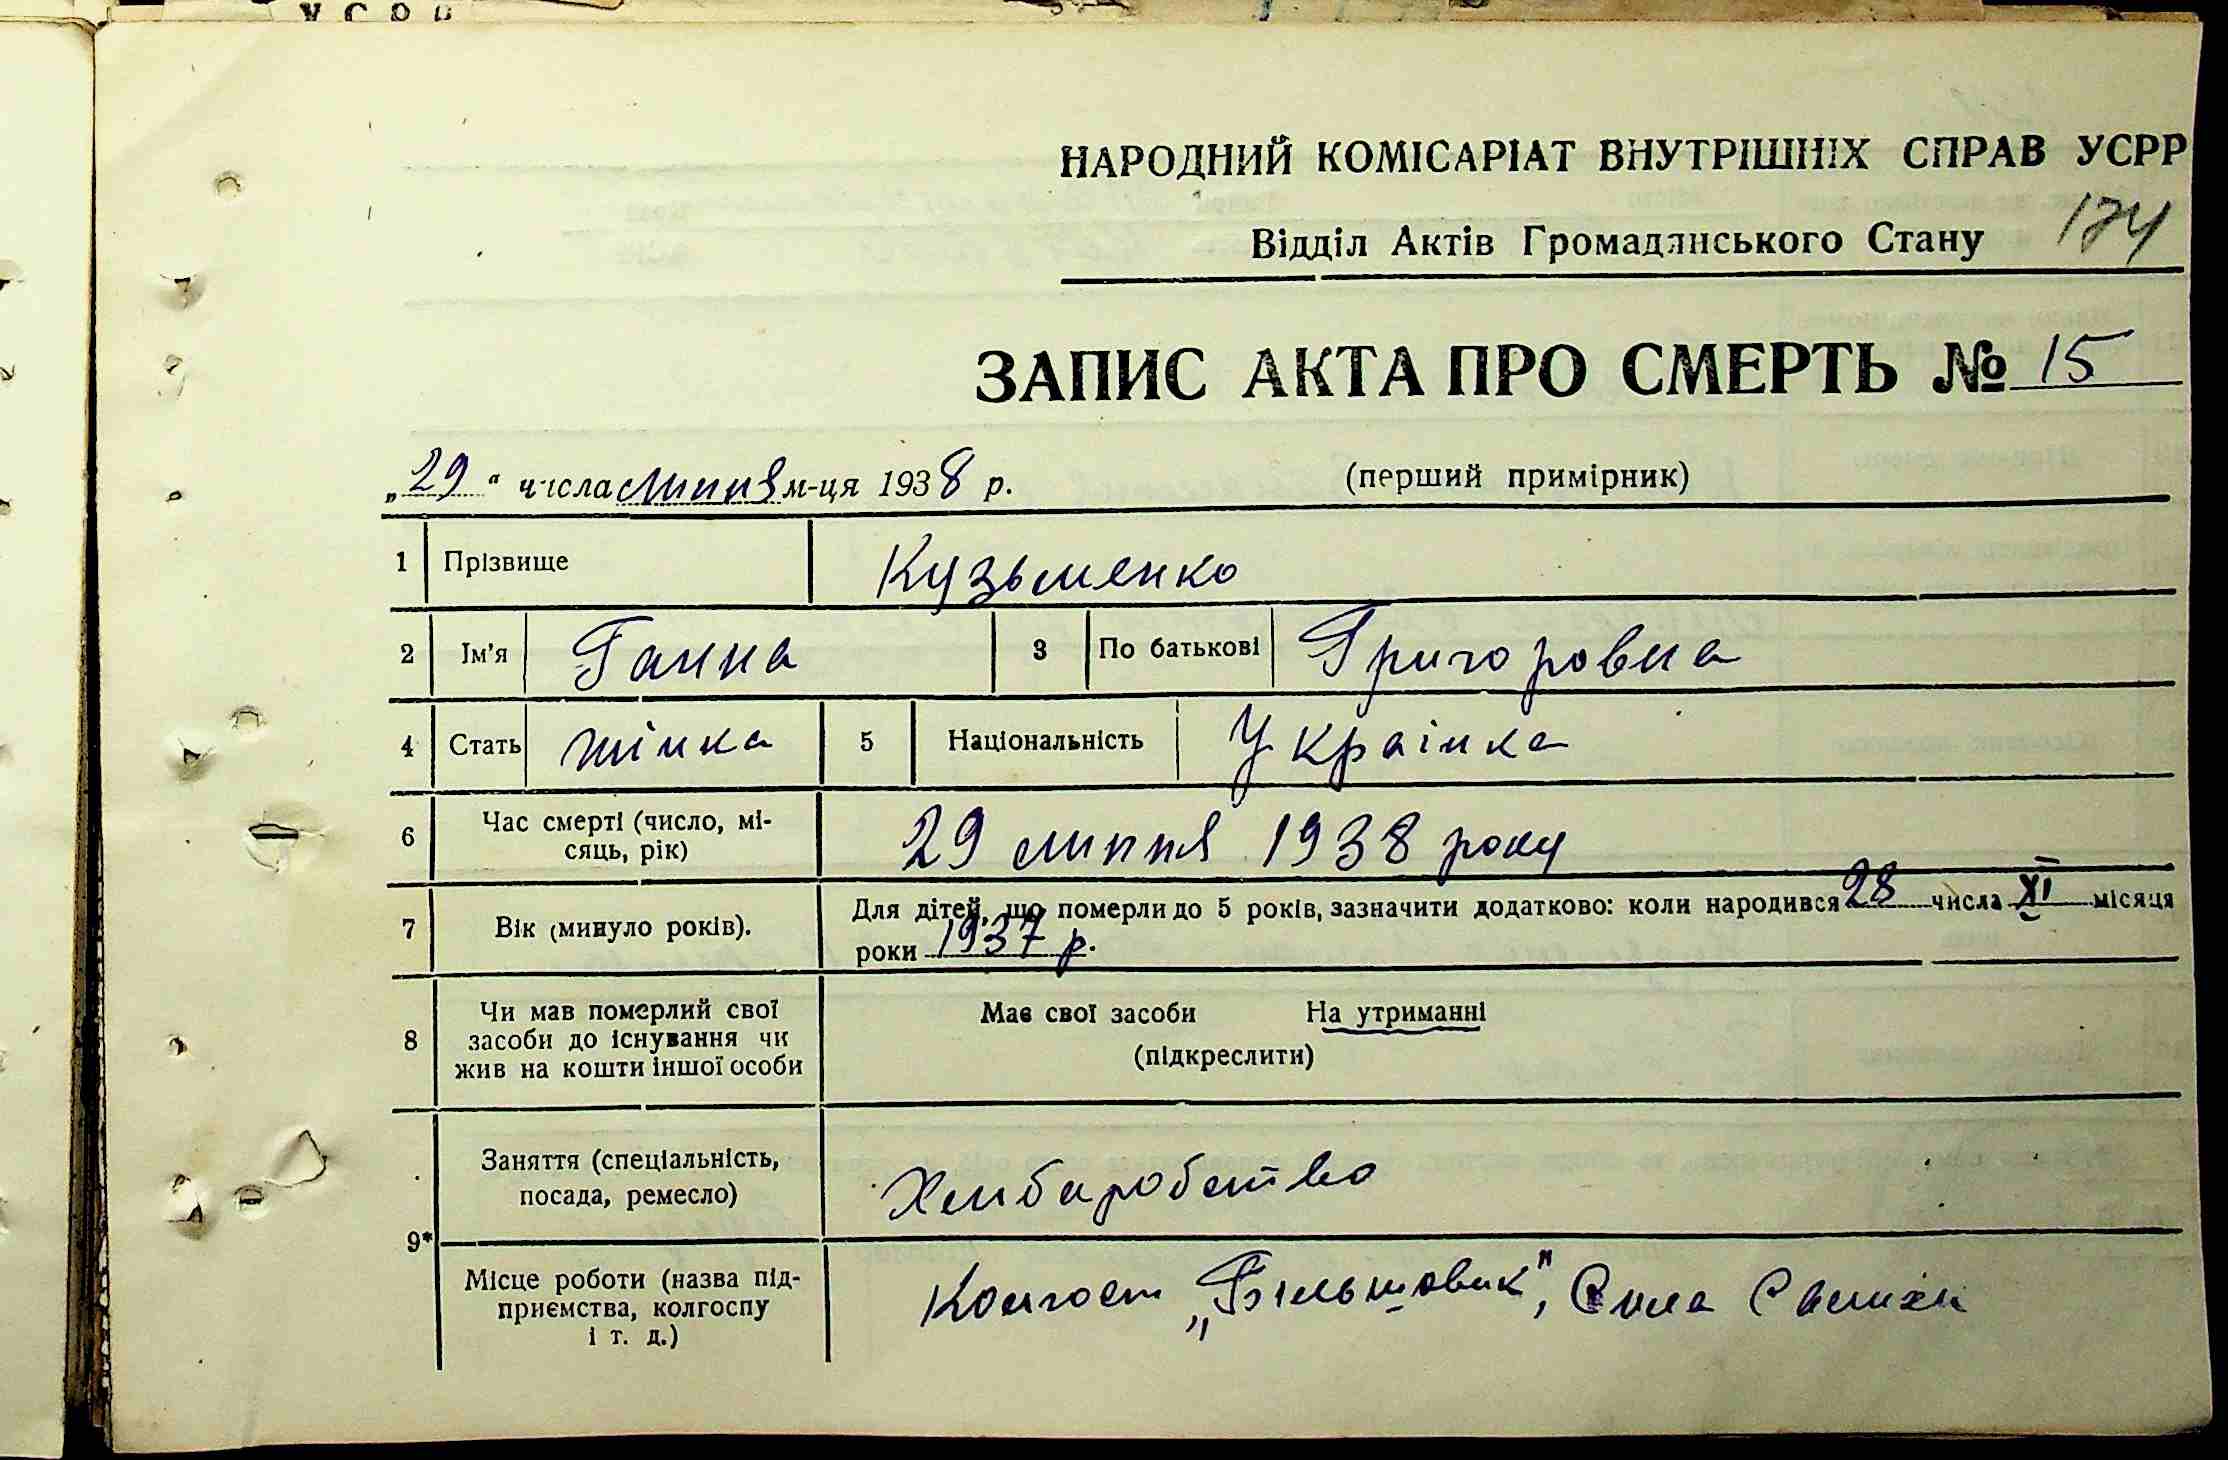 НАРОДНИЙ КОМІСАРІАТ ВНУТРІШНІХ СПРАВ УСРР
Відділ Актів Громадянського Стану 174
ЗАПИС АКТА ПРО СМЕРТЬ № 15
„29“ числа липня м-ця 1938 р. (перший примірник)
1 Прізвище Кузьменко
2 Ім'я Ганна 3 По батькові Григоровна
4 Стать жінка 5 Національність Українка
6 Час смерті (число, мі-
сяць, рік) 29 липня 1938 року
7 Вік (минуло років). Для дітей, що померли до 5 років, зазначити додатково: коли народився 28 числа XI місяця
роки 1937 р.
8 Чи мав померлий свої
засоби до існування чи
жив на кошти іншої особи
Має свої засоби На утриманні
(підкреслити)
9* Заняття (спеціальність,
посада, ремесло) Хлібаробство
Місце роботи (назва під-
приємства, колгоспу
і т. д.)
Колгосп „Більшовик“, Села